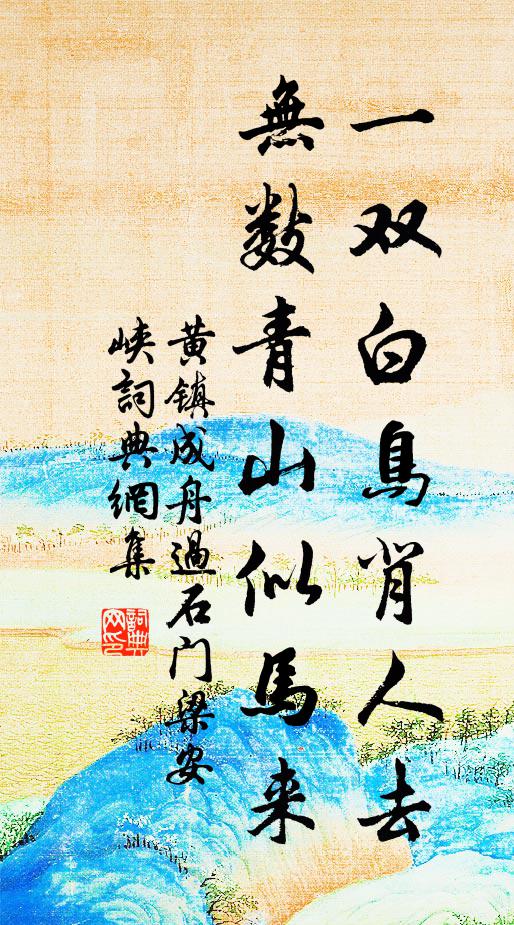 一双白鳥背人去
無数青山似馬来
黄镇成舟過石门梁安
峡詞典網集
詞典网印